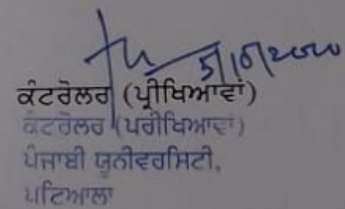 5/10/2020
ਕੰਟਰੋਲਰ (ਪ੍ਰੀਖਿਆਵਾਂ)
ਕੰਟਰੋਲਰ (ਪਰੀਖਿਆਵਾਂ)
ਪੰਜਾਬੀ ਯੂਨੀਵਰਸਿਟੀ,
ਪਟਿਆਲਾ